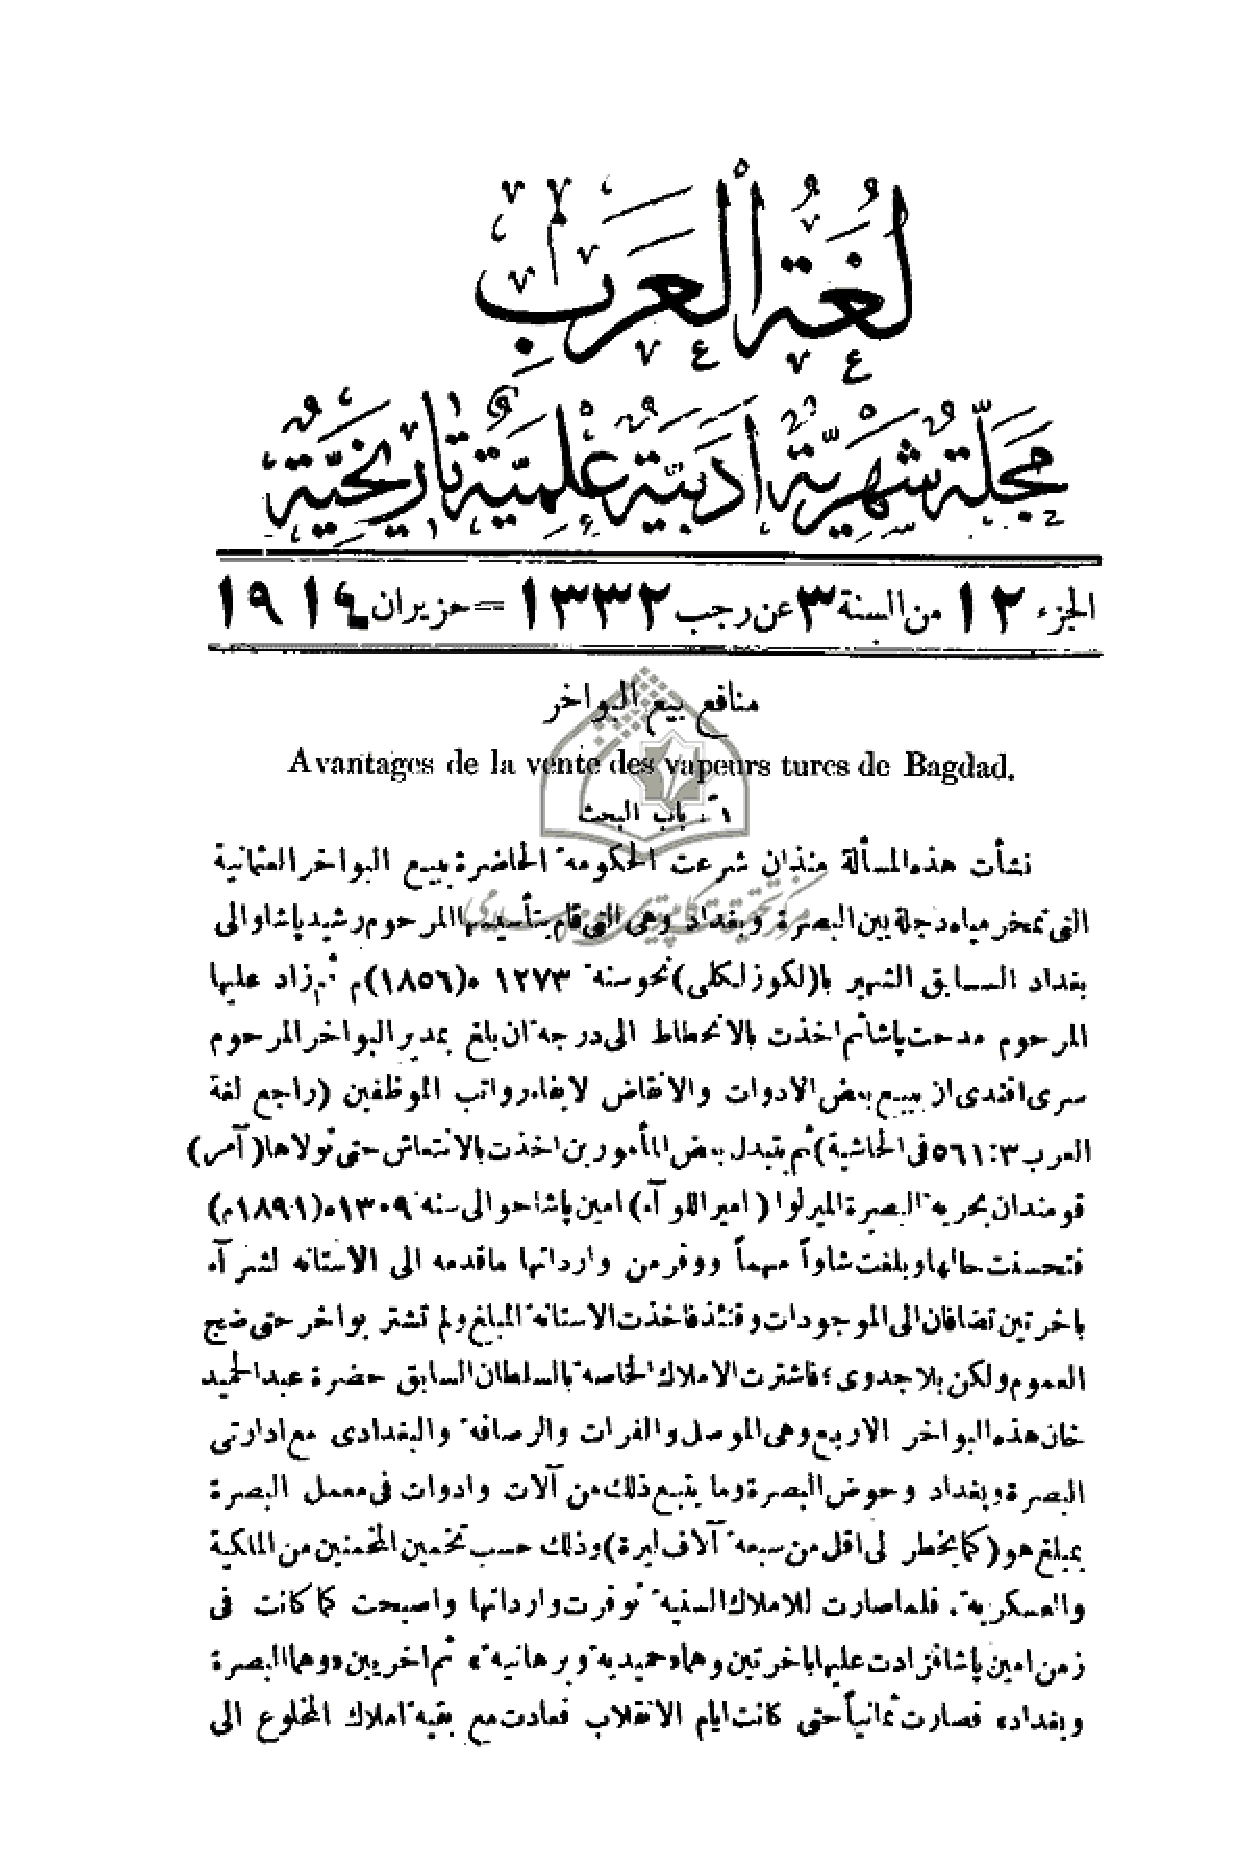 لُغَةُ ٱلْعَرَبِ
مَجَلَّةٌ شَهْرِيَّةٌ أَدَبِيَّةٌ عِلْمِيَّةٌ تَارِيخِيَّةٌ
الجزء ١٢ من السنة ٣ عن رجب ١٣٣٢ = حزيران ١٩١٤
منافع بيع البواخر
Avantages de la vente des vapeurs turcs de Bagdad.
١ً ـ باب البحث
نشأت هذه المسألة منذ ان شرعت الحكومة الحاضرة ببيع البواخر العثمانية
التى تمخر مياه دجلة بين البصرة وبغداد وهى التى قام بتأسيسها المرحوم رشيد پاشا والى
بغداد السابق الشهير با(لكوزلكلى) نحو سنة ١٢٧٣ ه‍ (١٨٥٦)م ثم زاد عليها
المرحوم مدحت پاشا ثم اخذت بالانحطاط الى درجة ان بلغ بمدير البواخر المرحوم
سرى افندى از يبيع بعض الادوات والانقاض لايفاء رواتب الموظفين (راجع لغة
العرب ٣: ٥٦١ فى الحاشية) ثم بتبدل بعض المأمورين اخذت بالانتعاش حتى تولاها (آمر)
قومندان بحرية البصرة الميرلوا (امير اللوآء) امين پاشا حوالى سنة ١٣٠٩ه‍ (١٨٩١م)
فتحسنت حالها وبلغت شاواً مهماً ووفر من وارداتها ماقدمه الى الاستانة لشرآء
باخرتين تضافان الى الموجودات وقتئذ فاخذت الاستانة المبلغ ولم تشتر بواخر حتى ضج
العموم ولكن بلا جدوى؛ فاشترت الاملاك الخاصة بالسلطان السابق حضرة عبد الحميد
خان هذه البواخر الاربع وهى الموصل والفرات والرصافة والبغدادى مع ادارتى
البصرة وبغداد وحوض البصرة وما يتبع ذلك من آلات وادوات فى معمل البصرة
بمبلغ هو (كما يخطر لى اقل من سبعة آلاف ليرة) وذلك حسب تخمين المخمنين من الملكية
والعسكرية. فلما صارت للاملاك السنية توفرت وارداتها واصبحت كما كانت فى
زمن امين پاشا فزادت عليها باخرتين وهما «حميدية وبرهانية» ثم اخريين «وهما البصرة
وبغداد» فصارت ثمانياً حتى كانت ايام الانقلاب فعادت مع بقية املاك المخلوع الى